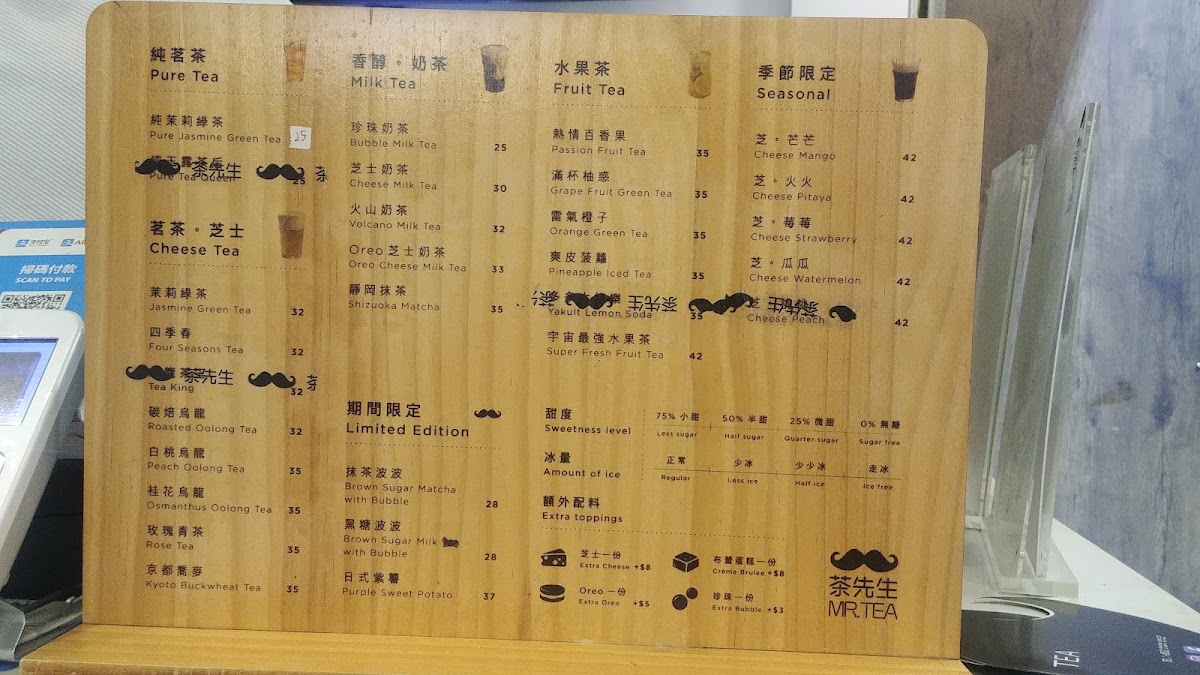 純茗茶
Pure Tea
純茉莉綠茶
Pure Jasmine Green Tea 25
茶先生 茶
Pure Tea Queen 25
茗茶。芝士
Cheese Tea
茉莉綠茶
Jasmine Green Tea 32
四季春
Four Seasons Tea 32
茶先生 茶
Tea King 32
碳焙烏龍
Roasted Oolong Tea 32
白桃烏龍
Peach Oolong Tea 35
桂花烏龍
Osmanthus Oolong Tea 35
玫瑰青茶
Rose Tea 35
京都蕎麥
Kyoto Buckwheat Tea 35
香醇。奶茶
Milk Tea
珍珠奶茶
Bubble Milk Tea 25
芝士奶茶
Cheese Milk Tea 30
火山奶茶
Volcano Milk Tea 32
Oreo 芝士奶茶
Oreo Cheese Milk Tea 33
靜岡抹茶
Shizuoka Matcha 35
期間限定
Limited Edition
抹茶波波
Brown Sugar Matcha
with Bubble 28
黑糖波波
Brown Sugar Milk
with Bubble 28
日式紫薯
Purple Sweet Potato 37
水果茶
Fruit Tea
熱情百香果
Passion Fruit Tea 35
滿杯柚惑
Grape Fruit Green Tea 35
雷氣橙子
Orange Green Tea 35
爽皮菠蘿
Pineapple Iced Tea 35
茶先生
Yakult Lemon Soda 35
宇宙最強水果茶
Super Fresh Fruit Tea 42
季節限定
Seasonal
芝。芒芒
Cheese Mango 42
芝。火火
Cheese Pitaya 42
芝。莓莓
Cheese Strawberry 42
芝。瓜瓜
Cheese Watermelon 42
茶先生
Cheese Peach 42
甜度
Sweetness level
75% 小甜 50% 半甜 25% 微甜 0% 無糖
Less sugar Half sugar Quarter sugar Sugar free
冰量
Amount of ice
正常 少冰 少少冰 走冰
Regular Less ice Half ice Ice free
額外配料
Extra toppings
芝士一份
Extra Cheese +$8
布蕾蛋糕一份
Creme Brulee +$8
Oreo 一份
Extra Oreo +$5
珍珠一份
Extra Bubble +$3
茶先生
MR.TEA
支付宝
掃碼付款
SCAN TO PAY
TEA